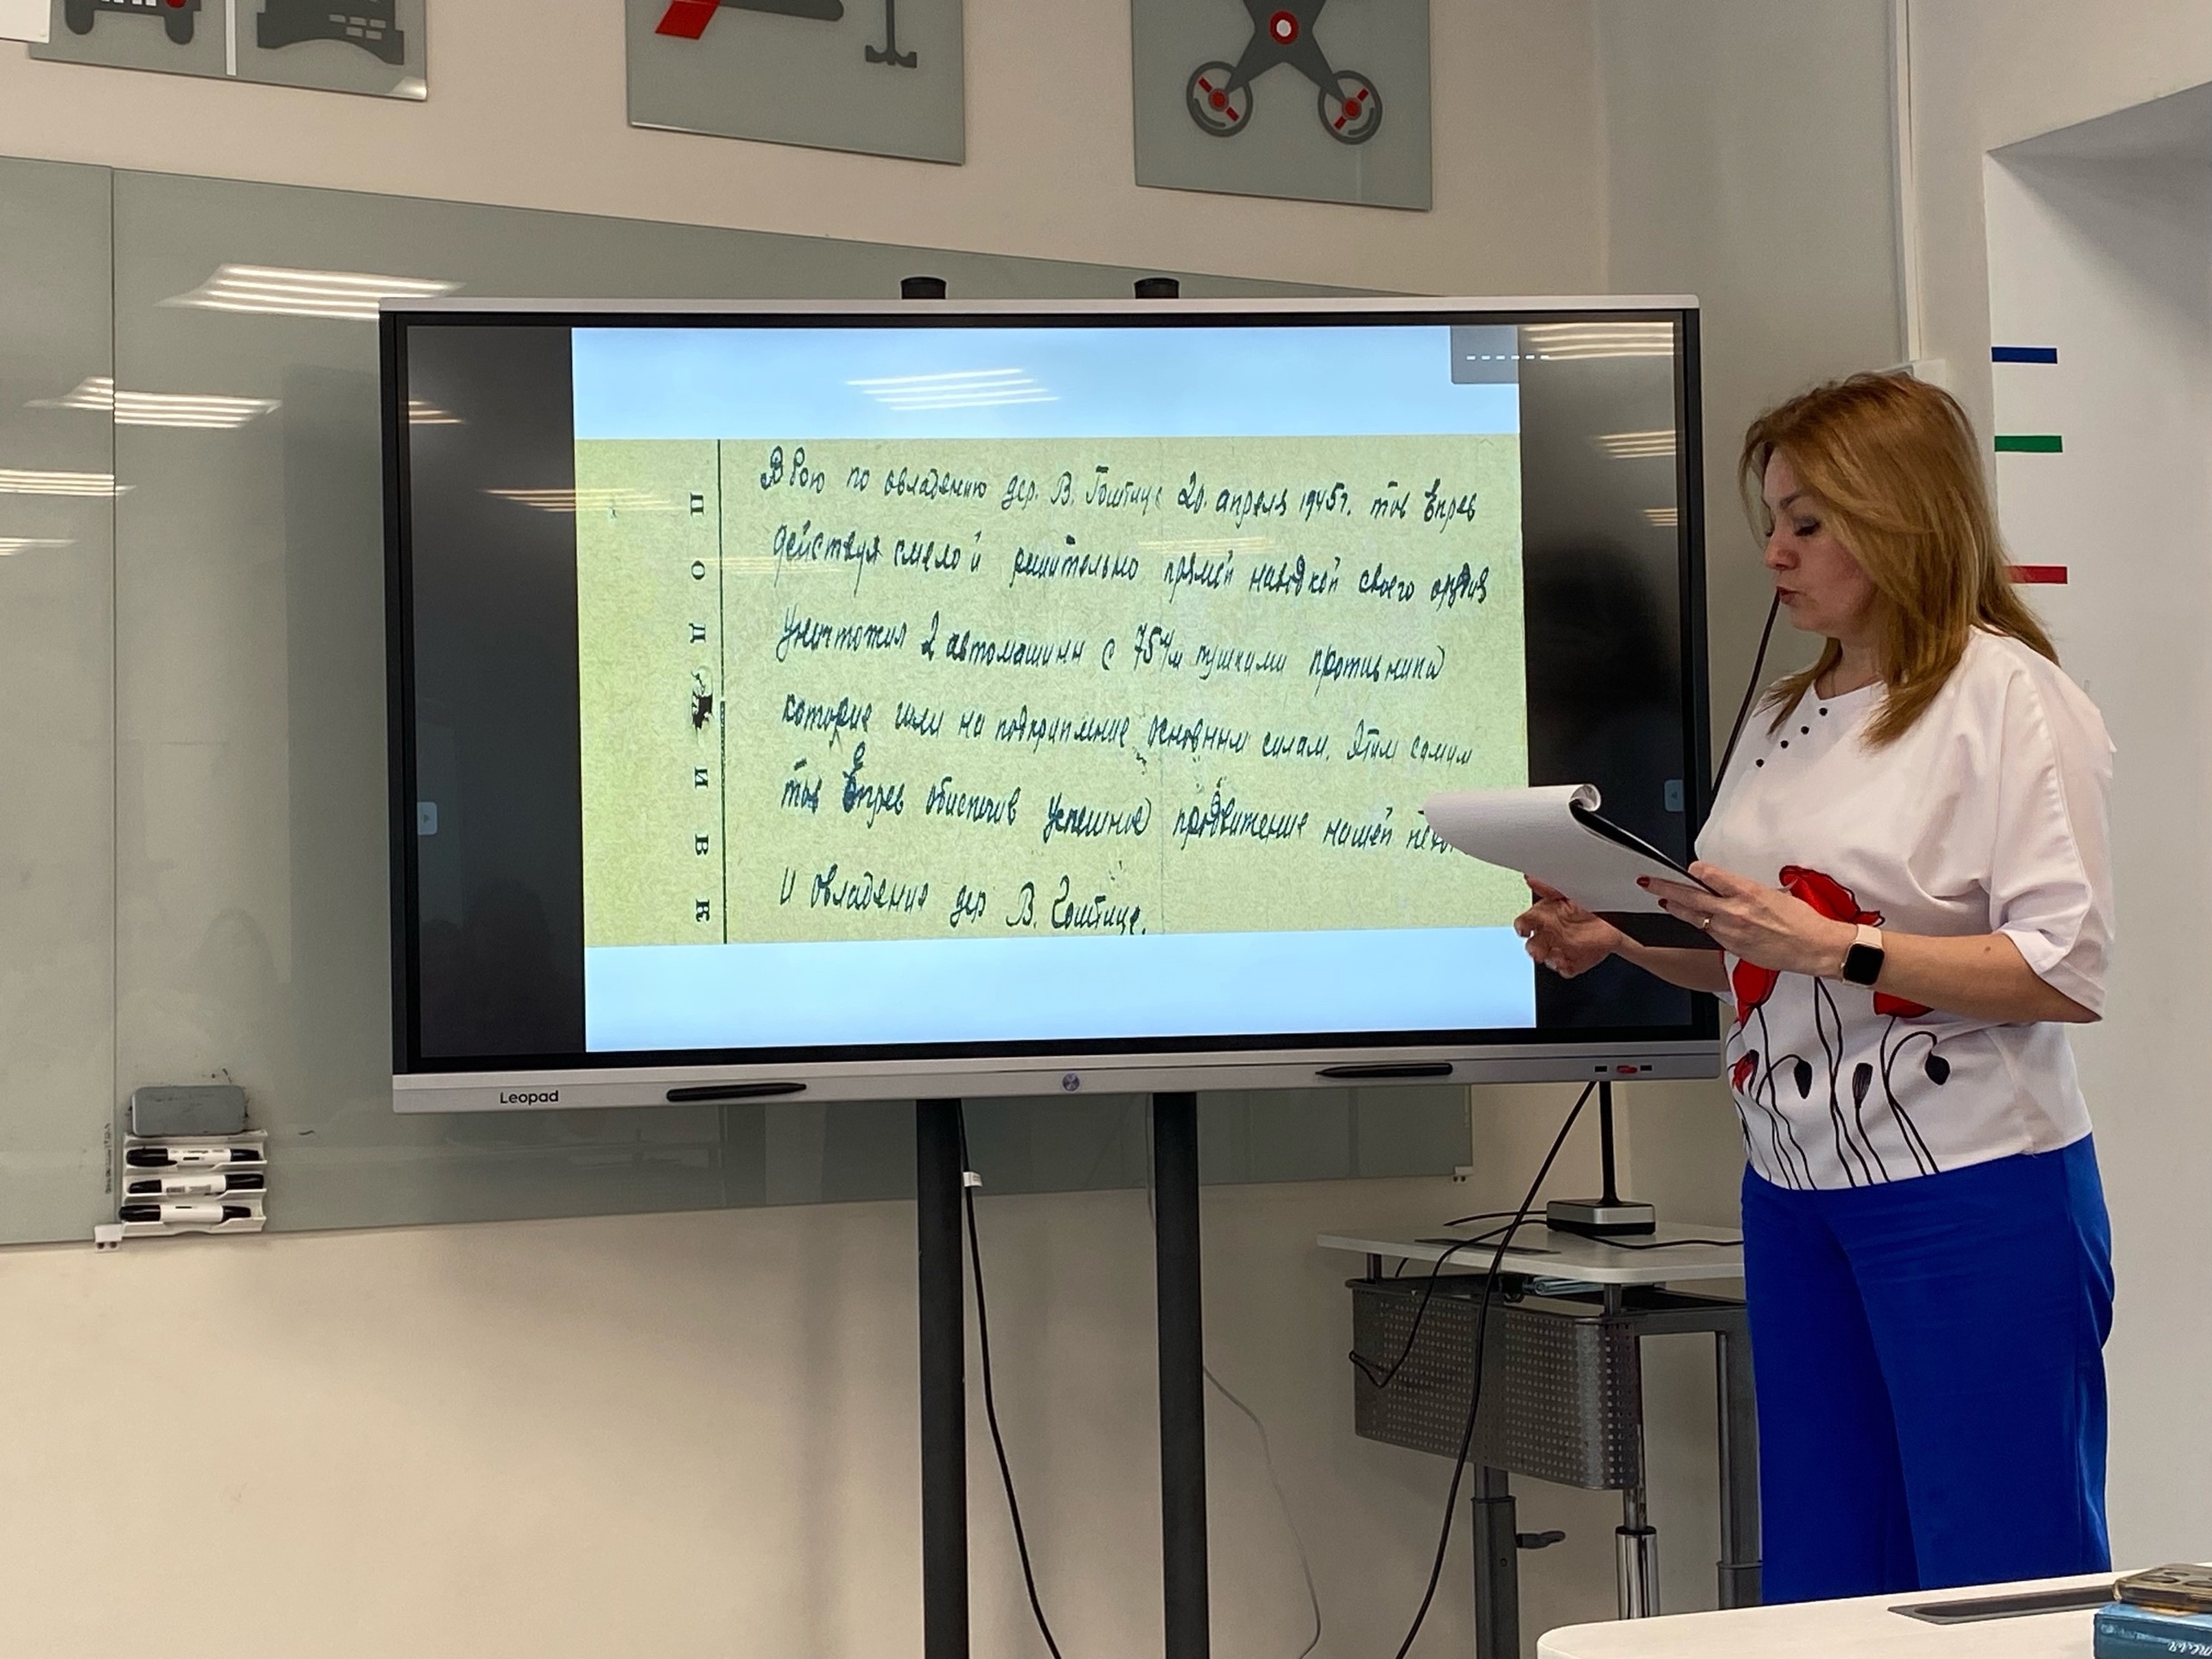 В бою по овладению дер. В. Гоштице 20. апреля 1945г. тов Епрев
действуя смело и решительно прямой наводкой своего орудия
уничтожил 2 автомашины с 75 м/м пушками противника
которые шли на подкрипление основным силам. Этим самым
тов Епрев обиспечив успешное продвижение нашей
и овладение дер В. Гоштице.
П О Д И В К
Leopad